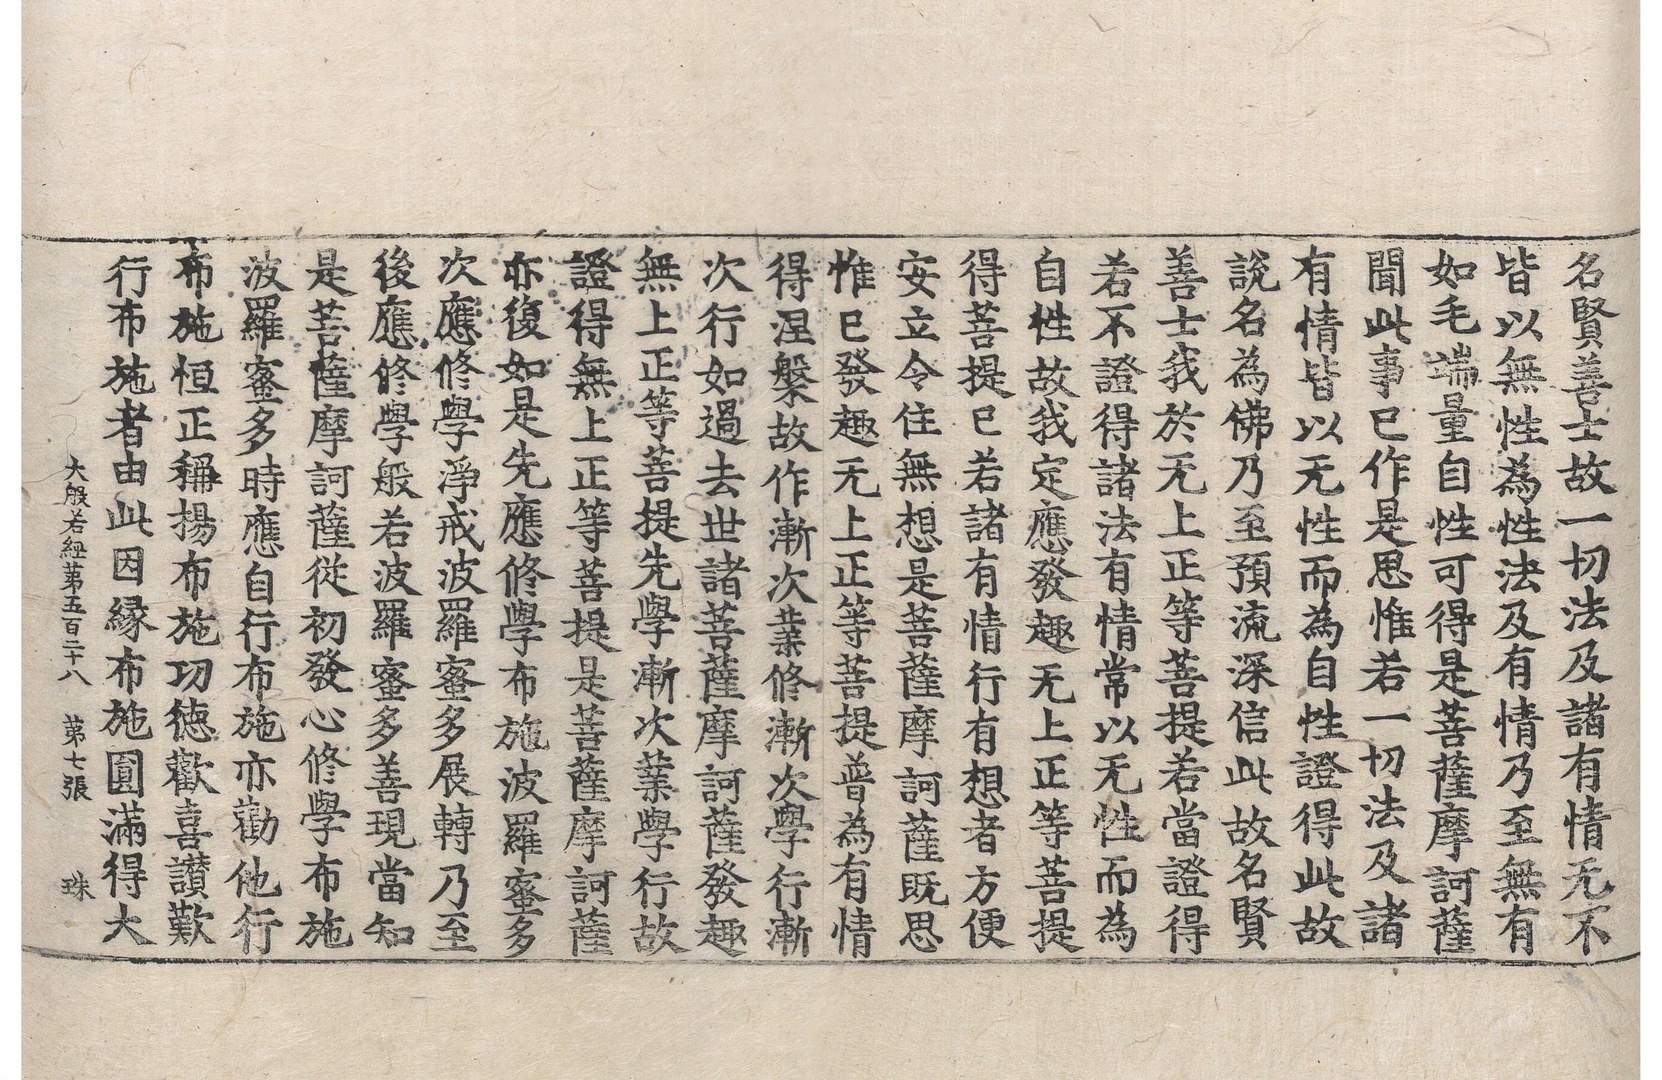 名賢善士故一切法及諸有情无不
皆以無性為性法及有情乃至無有
如毛端量自性可得是菩薩摩訶薩
聞此事已作是思惟若一切法及諸
有情皆以无性而為自性證得此故
說名為佛乃至預流深信此故名賢
善士我於无上正等菩提若當證得
若不證得諸法有情常以无性而為
自性故我定應發趣无上正等菩提
得菩提已若諸有情行有想者方便
安立令住無想是菩薩摩訶薩既思
惟已發趣无上正等菩提普為有情
得涅槃故作漸次業修漸次學行漸
次行如過去世諸菩薩摩訶薩發趣
無上正等菩提先學漸次業學行故
證得無上正等菩提是菩薩摩訶薩
亦復如是先應修學布施波羅蜜多
次應修學淨戒波羅蜜多展轉乃至
後應修學般若波羅蜜多善現當知
是菩薩摩訶薩從初發心修學布施
波羅蜜多時應自行布施亦勸他行
布施恒正稱揚布施功德歡喜讚歎
行布施者由此因縁布施圓滿得大
大般若經第五百二十八 第七張 珠